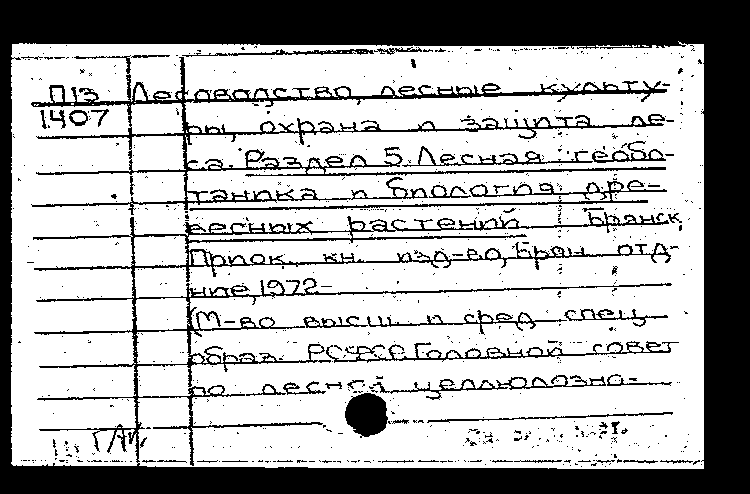 П13 Лесоводство, лесные культу-
1407 ры, охрана и защита ле-
са. Раздел 5. Лесная геобо-
таника и биология дре-
весных растений Брянск,
Приок. кн. изд-во, Брян отд-
ние, 1972-
(М-во высш и сред спец
образ. РСФСР Головной совет
по лесной целлюлозно-